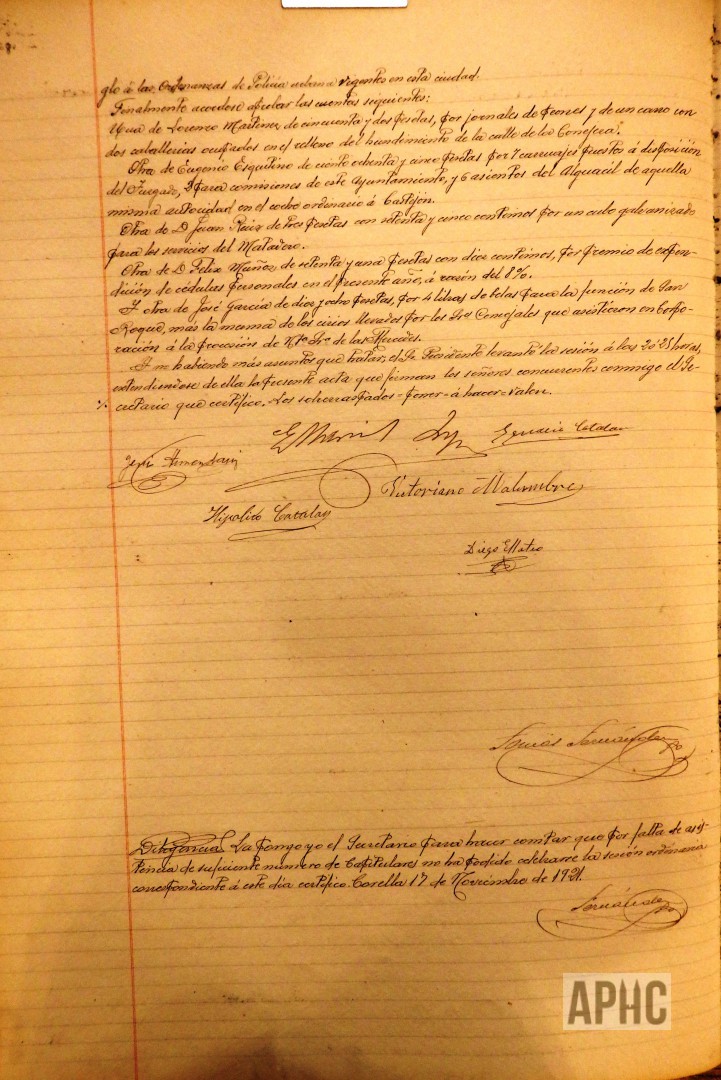 glo á las Ordenanzas de Policia urbana vigentes en esta ciudad.
Finalmente acordose aprobar las cuentas siguientes:
Una de Lorenzo Martinez de cincuenta y dos pesetas, por jornales de peones y de un carro con
dos caballerias ocupados en el relleno del hundimiento de la calle de la Conejera.
Otra de Eugenio Esquitino de ciento ochenta y cinco pesetas por 7 carruajes puestos á disposición
del Juzgado, 2 para comisiones de este Ayuntamiento, y 6 asientos del Alguacil de aquella
misma autoridad en el coche ordinario á Castejón.
Otra de D. Juan Ruiz de tres pesetas con setenta y cinco centimos por un cubo galvanizado
para los servicios del Matadero.
Otra de D. Felix Muñoz de setenta y una pesetas con diez centimos, por premio de expen-
dición de cédulas personales en el presente año, á razón del 8%.
Y otra de José García de diez y ocho pesetas, por 4 libras de belas para la función de San
Roque, más la merma de los cirios llevados por los Sres Concejales que asistieron en Corpo-
ración á la procesión de Ntra Sra de las Mercedes.
Y no habiendo más asuntos que tratar, el Sr. Presidente levantó la sesión á las 20'25 horas,
extendiendose de ella la presente acta que firman los señores concurrentes conmigo el Se-
cretario que certifico. Los sobrerraspados = poner = á hacer = valen.
Genaro Catalán
Jesús Armendariz
Victoriano Malumbres
Hipolito Catalán
Diego Mateo
Fernández
Diligencia. La pongo yo el Secretario para hacer constar que por falta de asis-
tencia de suficiente número de Capitulares no ha podido celebrarse la sesión ordinaria
correspondiente á este día certifico. Corella 17 de Noviembre de 1921.
Fernández
APHC